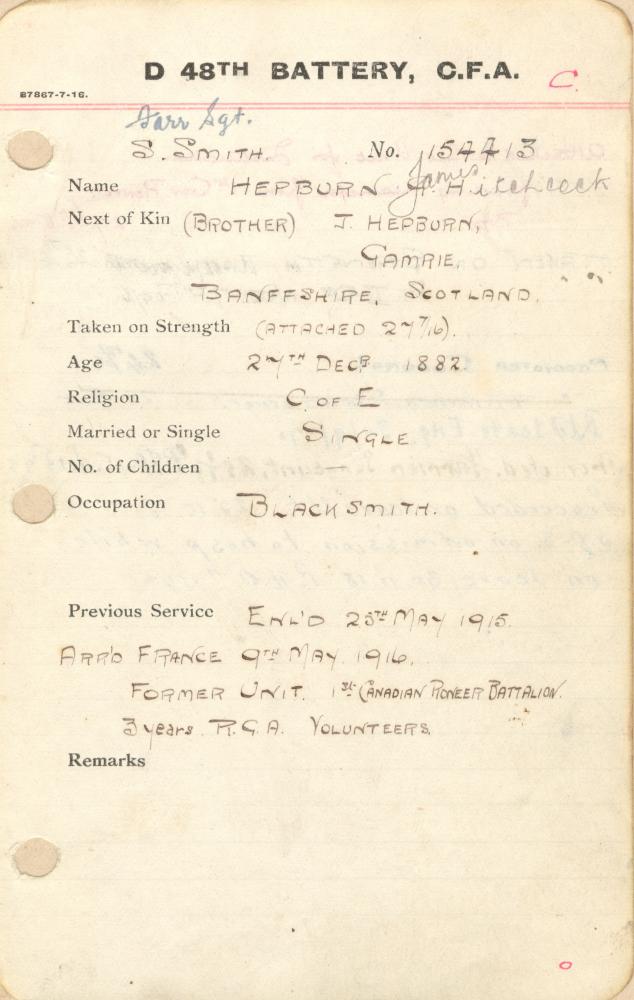 D 48TH BATTERY, C.F.A. C.
B7867-7-16.
Farr Sgt.
S. SMITH. No. 154413
James
Name HEPBURN J. Hitchcock
Next of Kin (BROTHER) J. HEPBURN,
GAMRIE,
BANFFSHIRE, SCOTLAND.
Taken on Strength (ATTACHED 27/7/16).
Age 27TH DECR. 1882
Religion C OF E
Married or Single SINGLE
No. of Children —
Occupation BLACKSMITH.
Previous Service ENL'D 25TH MAY 1915.
ARR'D FRANCE 9TH MAY. 1916.
FORMER UNIT. 1st CANADIAN PIONEER BATTALION.
3 years R.G.A. VOLUNTEERS.
Remarks